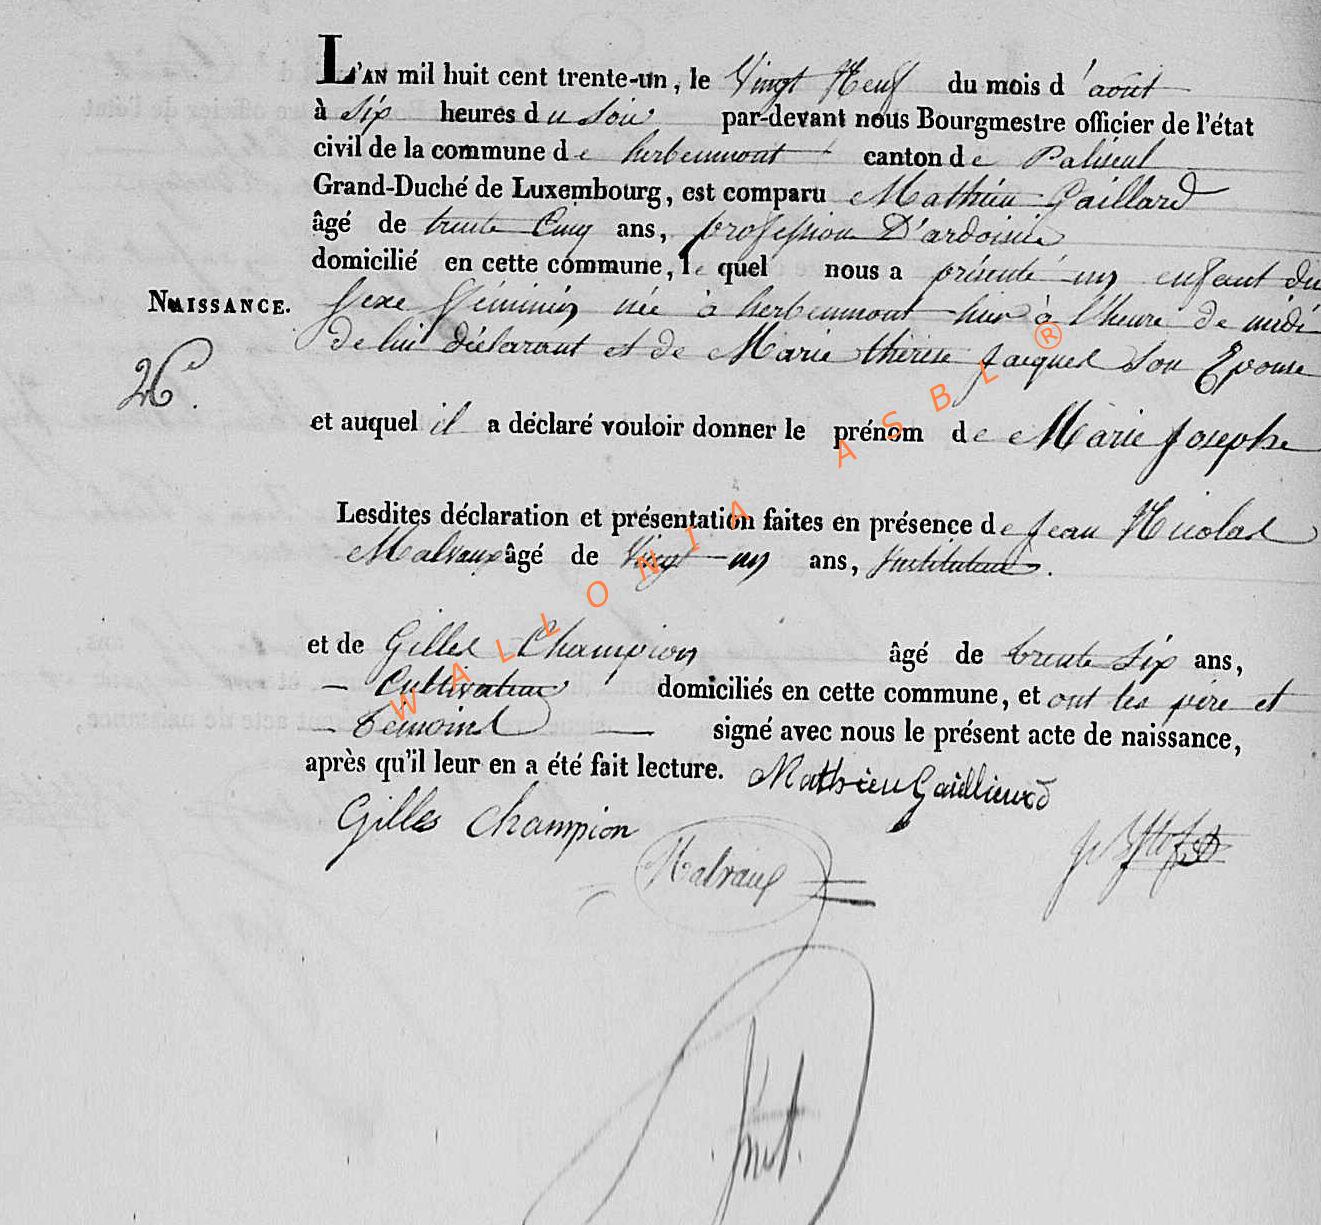 L'AN mil huit cent trente-un, le Vingt Neuf du mois d'août
à Six heures du Soir par-devant nous Bourgmestre officier de l'état
civil de la commune de herbeumont canton de Paliseul
Grand-Duché de Luxembourg, est comparu Mathieu Gaillard
âgé de trente Cinq ans, profession D'ardoisier
domicilié en cette commune, le quel nous a présenté un enfant du
NAISSANCE. Sexe féminin née à herbeumont hier à l'heure de midi
de lui déclarant et de Marie thérèse Jacques Son Epouse
26e.
et auquel il a déclaré vouloir donner le prénom de Marie Josephe
Lesdites déclaration et présentation faites en présence de Jean Nicolas
Malvaux âgé de Vingt un ans, Instituteur.
et de Gilles Champion âgé de trente Six ans,
Cultivateur domiciliés en cette commune, et ont les père et
témoins signé avec nous le présent acte de naissance,
après qu'il leur en a été fait lecture. Mathieu Gaillard
Gilles Champion
Malvaux
WALLONIA ASBL ®